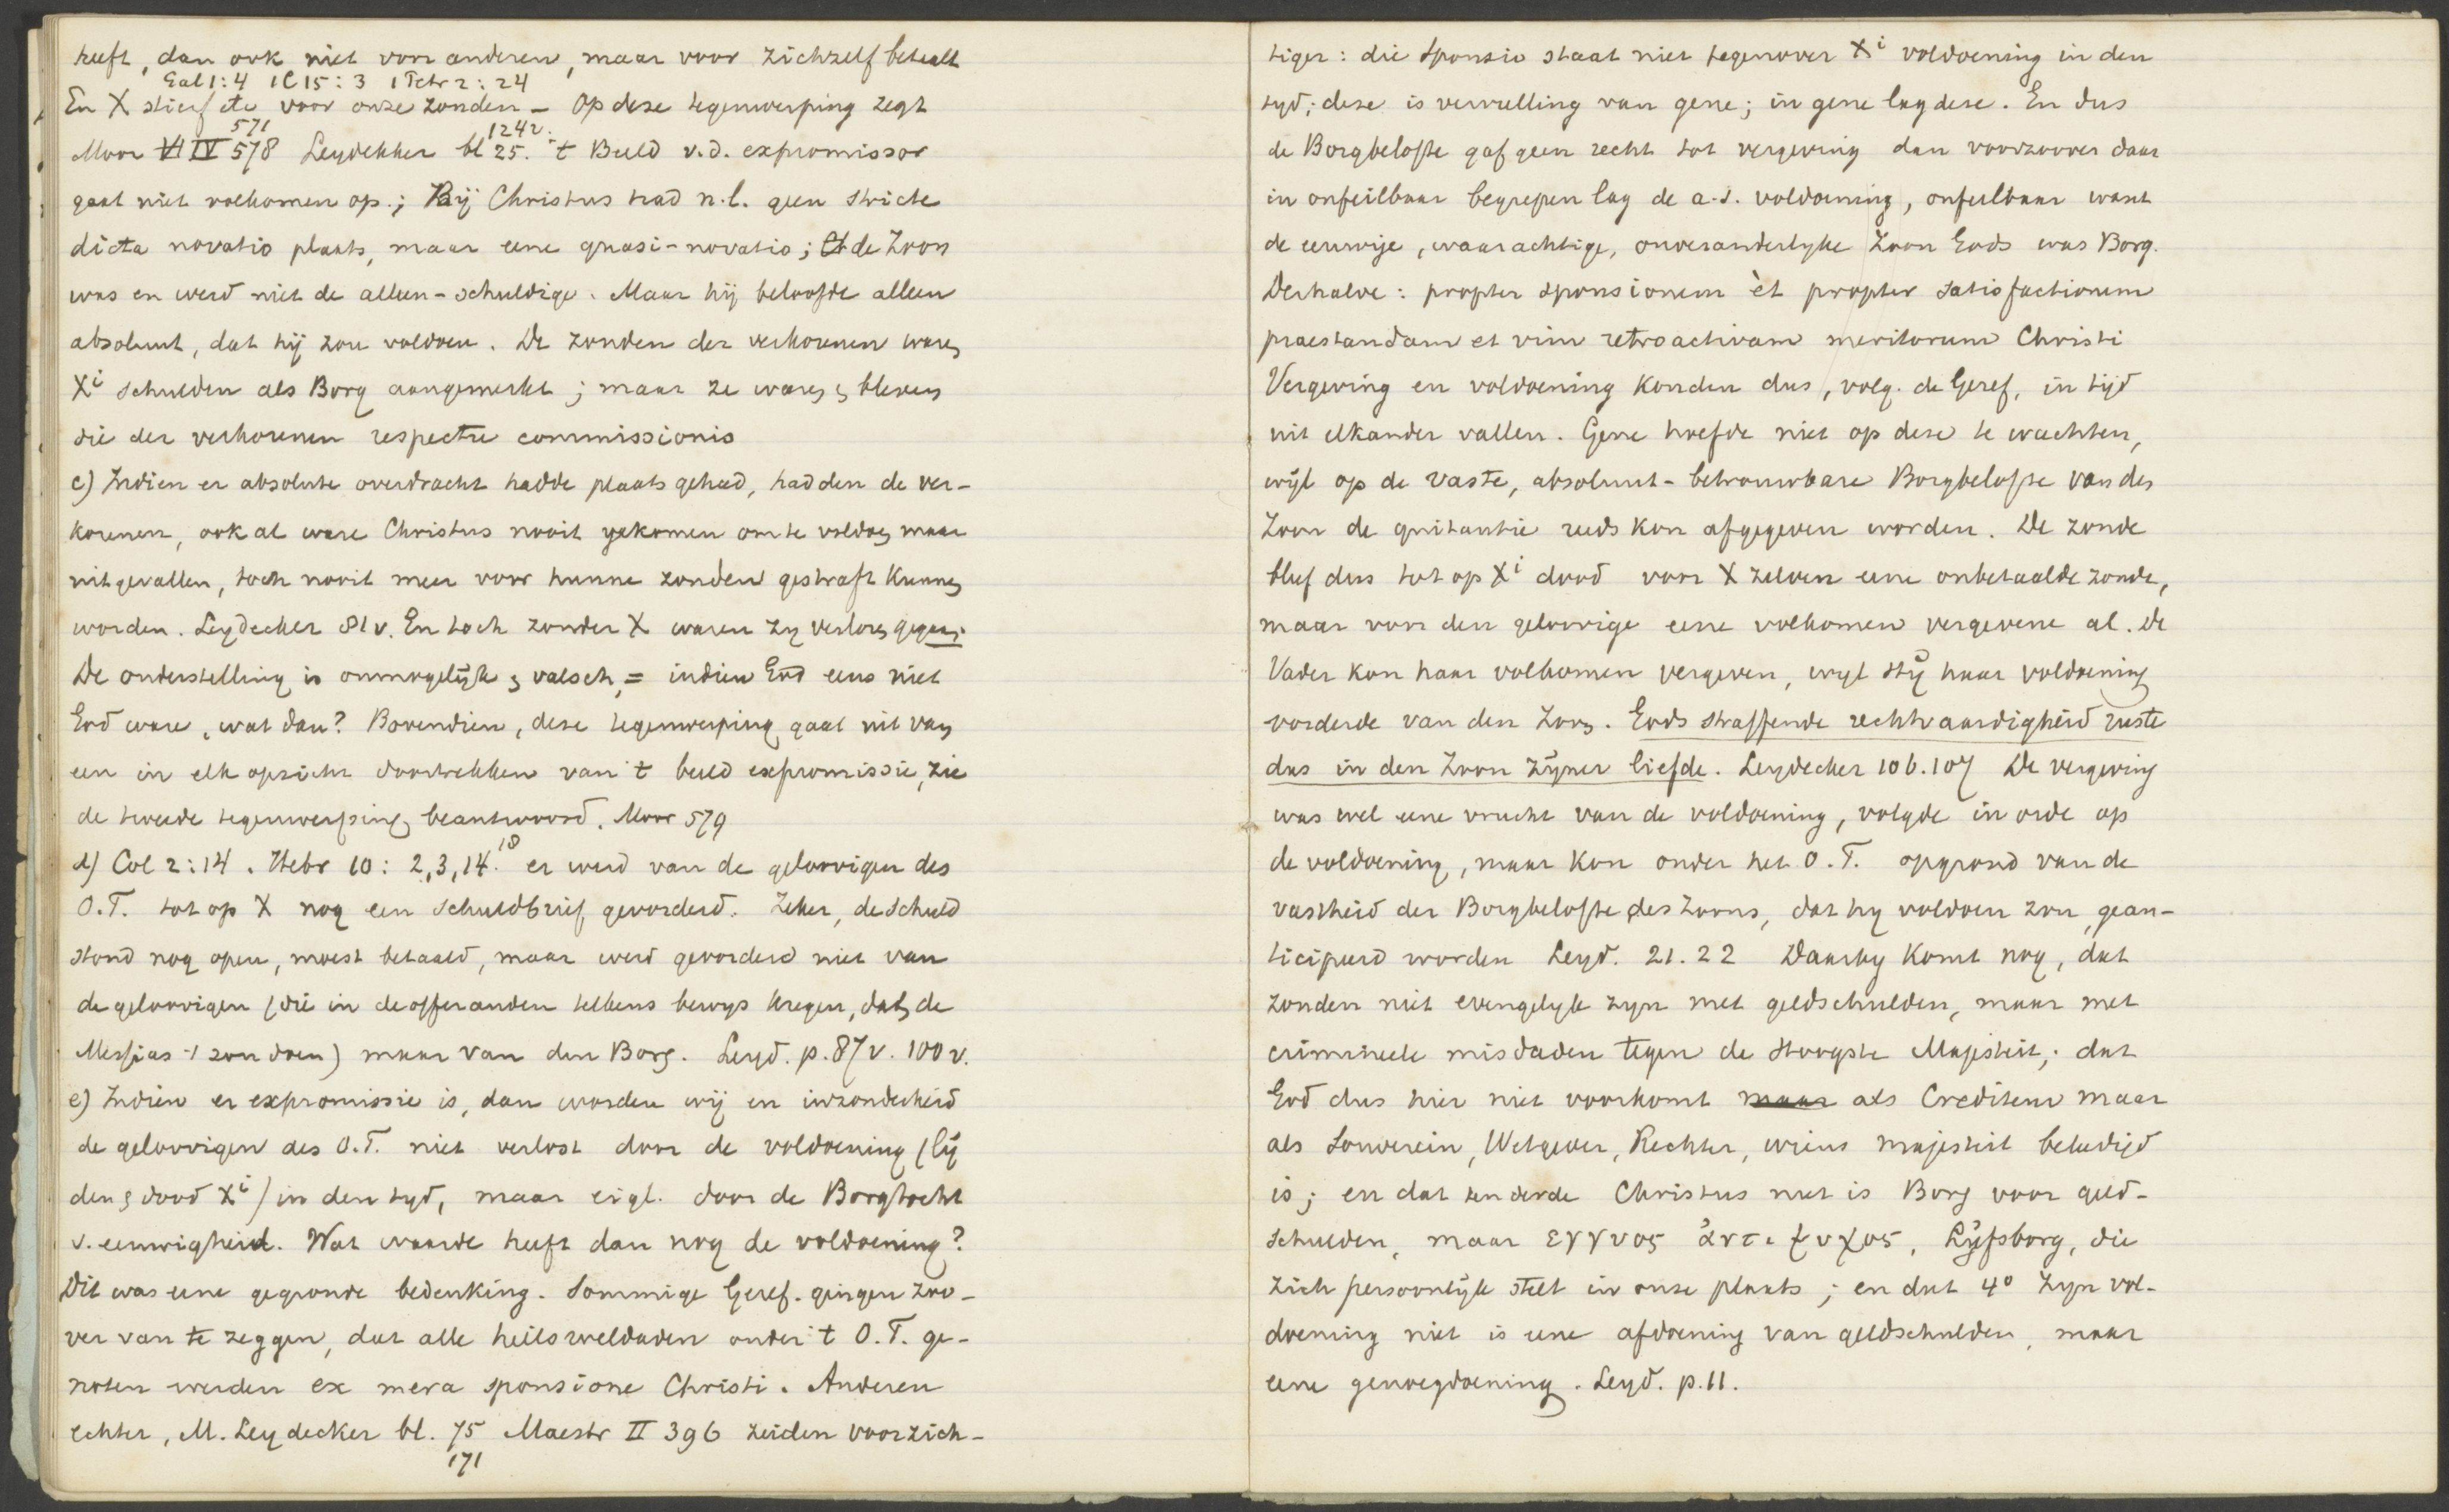 heeft, dan ook niet voor anderen, maar voor zichzelf betaalt
Gal 1:4 1C 15:3 1 Petr 2:24
En X stierf etc voor onze zonden - Op deze tegenwerping zegt
571 124v.
Moor IV 578 Leydekker bl 25. 't Beeld v.d. expromissor
gaat niet volkomen op.; Bij Christus had n.l. geen stricte
dicta novatio plaats, maar eene quasi-novatio; de Zoon
was en werd niet de alleen-schuldige. Maar hij beloofde alleen
absoluut, dat hij zou voldoen. De zonden der verkorenen waren
Xi schulden als Borg aangemerkt; maar ze waren & bleven
die der verkorenen respectu commissionis
c) Indien er absolute overdracht hadde plaats gehad, hadden de ver-
korenen, ook al ware Christus nooit gekomen om te voldoen, maar
uitgevallen, toch nooit meer voor hunne zonden gestraft kunnen
worden. Leydecker 81v. En toch zonder X waren zy verloren gegaan.
De onderstelling is onmogelijk & valsch, = indien God eens niet
God ware, wat dan? Bovendien, deze tegenwerping gaat uit van
een in elk opzicht doortrekken van 't beeld expromissie, zie
de tweede tegenwerping beantwoord. Moor 579
d) Col 2:14. Hebr 10: 2,3,14.18 er werd van de geloovigen des
O.T. tot op X nog een schuldbrief gevorderd. Zeker, de schuld
stond nog open, moest betaald, maar werd gevorderd niet van
de geloovigen (die in de offeranden telkens bewys kregen, dat de
Messias 't zou doen) maar van den Borg. Leyd. p. 87v. 100v.
e) Indien er expromissie is, dan worden wij en inzonderheid
de geloovigen des O.T. niet verlost door de voldoening (lij
den & dood Xi) in den tyd, maar eigl. door de Borgtocht
v. eeuwigheid. Wat waarde heeft dan nog de voldoening?
Dit was eene gegronde bedenking. Sommige Geref. gingen zoo-
ver van te zeggen, dat alle heilsweldaden onder 't O.T. ge-
noten werden ex mera sponsione Christi. Anderen
echter, M. Leydecker bl. 75 Maestr II 396 zeiden voorzich-
171
tiger: die sponsio staat niet tegenover Xi voldoening in den
tyd; deze is vervulling van gene; in gene lag deze. En dus
de Borgbelofte gaf geen recht tot vergeving dan voorzoover daar
in onfeilbaar begrepen lag de a.s. voldoening, onfeilbaar want
de eeuwige, waarachtige, onveranderlyke Zoon Gods was Borg.
Derhalve: propter sponsionem èt propter satisfactionem
praestandam et vim retroactivam meritorum Christi
Vergeving en voldoening konden dus, volg. de Geref, in tijd
uit elkander vallen. Gene hoefde niet op deze te wachten,
wijl op de vaste, absoluut-betrouwbare Borgbelofte van den
Zoon de quitantie reeds kon afgegeven worden. De zonde
bleef dus tot op Xi dood voor X zelven eene onbetaalde zonde,
maar voor den geloovige eene volkomen vergevene al. De
Vader kon haar volkomen vergeven, wyl Hij haar voldoening
vorderde van den Zoon. Gods straffende rechtvaardigheid rustte
dus in den Zoon Zijner liefde. Leydecker 106.107 De vergeving
was wel eene vrucht van de voldoening, volgde in orde op
de voldoening, maar kon onder het O.T. op grond van de
vastheid der Borgbelofte des Zoons, dat hy voldoen zou, gean-
ticipeerd worden Leyd. 21.22 Daarby komt nog, dat
zonden niet evengelyk zyn met geldschulden, maar met
crimineele misdaden tegen de Hoogste Majesteit; dat
God dus hier niet voorkomt maar als Crediteur maar
als Souverein, Wetgever, Rechter, wiens majesteit beleedigd
is; en dat ten derde Christus niet is Borg voor geld-
schulden, maar εγγυος ἀντιψυχος, Lijfsborg, die
zich persoonlijk stelt in onze plaats; en dat 4° zyn vol-
doening niet is eene afdoening van geldschulden, maar
eene genoegdoening. Leyd. p. 11.